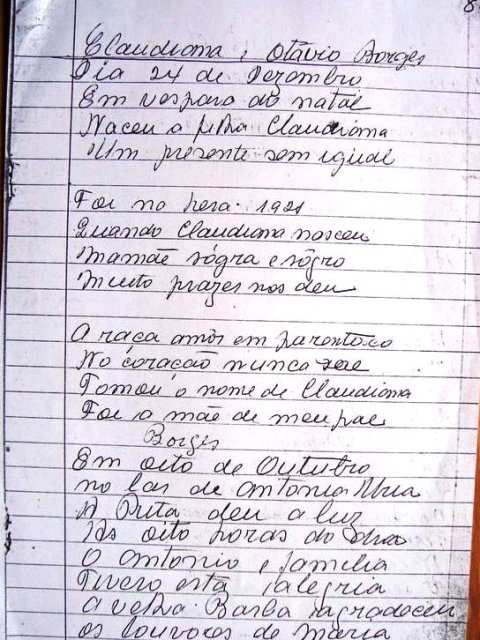 8
Claudiana, Otávio Borges
Dia 24 de Dezembro
Em vespara do natal
Naceu a filha Claudiana
Um presente sem igual
Foi na hera 1921
Quando Claudiana nasceu
Mamãe sógra e sôgro
Muito prazer nos deu
A raça amôr em parentesco
No coração nunca
Tomou o nome de Claudiana
Foi a mãe de meu pae
Borges
Em oito de Outubro
no lar de Antonia
A Rita deu a luz
As oito horas do dia
O Antonio e familia
Tivero esta alegria
a velha Barba agradeceu
os louvores de Maria